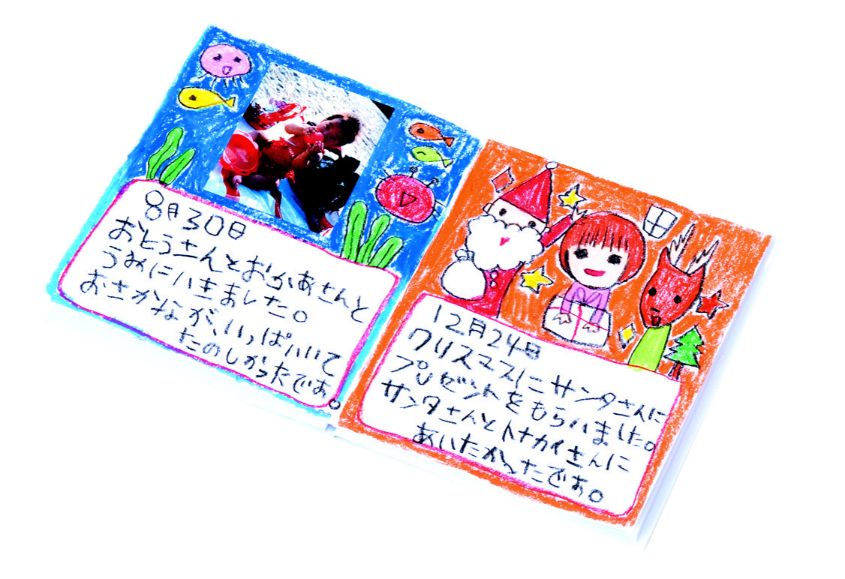 8月30日
おとうさんとおかあさんと
うみにいきました。
おさかなが、いっぱいいて
たのしかったです。
12月24日
クリスマスにサンタさんに
プレゼントをもらいました。
サンタさんとトナカイさんに
あいたかったです。